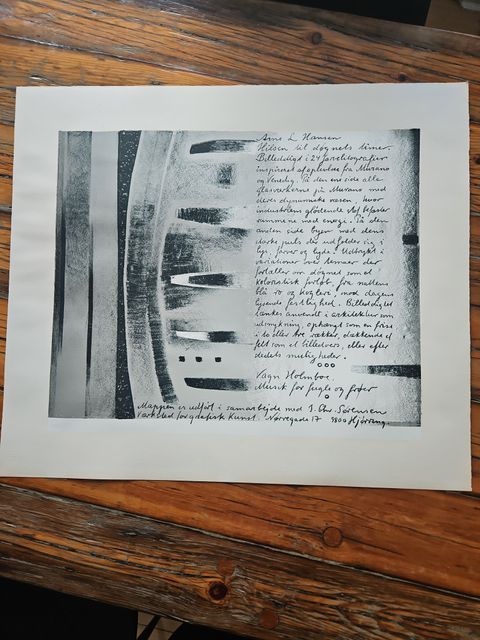 Arne L Hansen
Hilsen til døgnets timer.
Billeddigt i 24 farvelitografier
inspireret af oplevelse fra Murano
og Venedig. På den ene side alle
glasværkerne på Murano med
deres dynamiske væsen, hvor
industriens glødende stof befolder
rummene med energi. På den
anden side byen med dens
dark puls der udfolder sig i
lys, farver og lyde. Udtrykt i
variationer over temaer der
fortæller om døgnet som et
koloristisk forløb, fra nattens
blå ro og kogleri, mod dagens
lysende festlighed. Billeddigtet
tænkes anvendt i arkitektur som
udsmykning, ophængt som en frise
i to eller tre rækker, dækkende et
felt som et billedvers, eller efter
stedets muligheder.
Vagn Holmboe,
Musik for fugle og frøer
Mappen er udført i samarbejde med J. Chr. Sørensen
Værksted for grafisk kunst. Nørregade 17 9800 Hjørring.